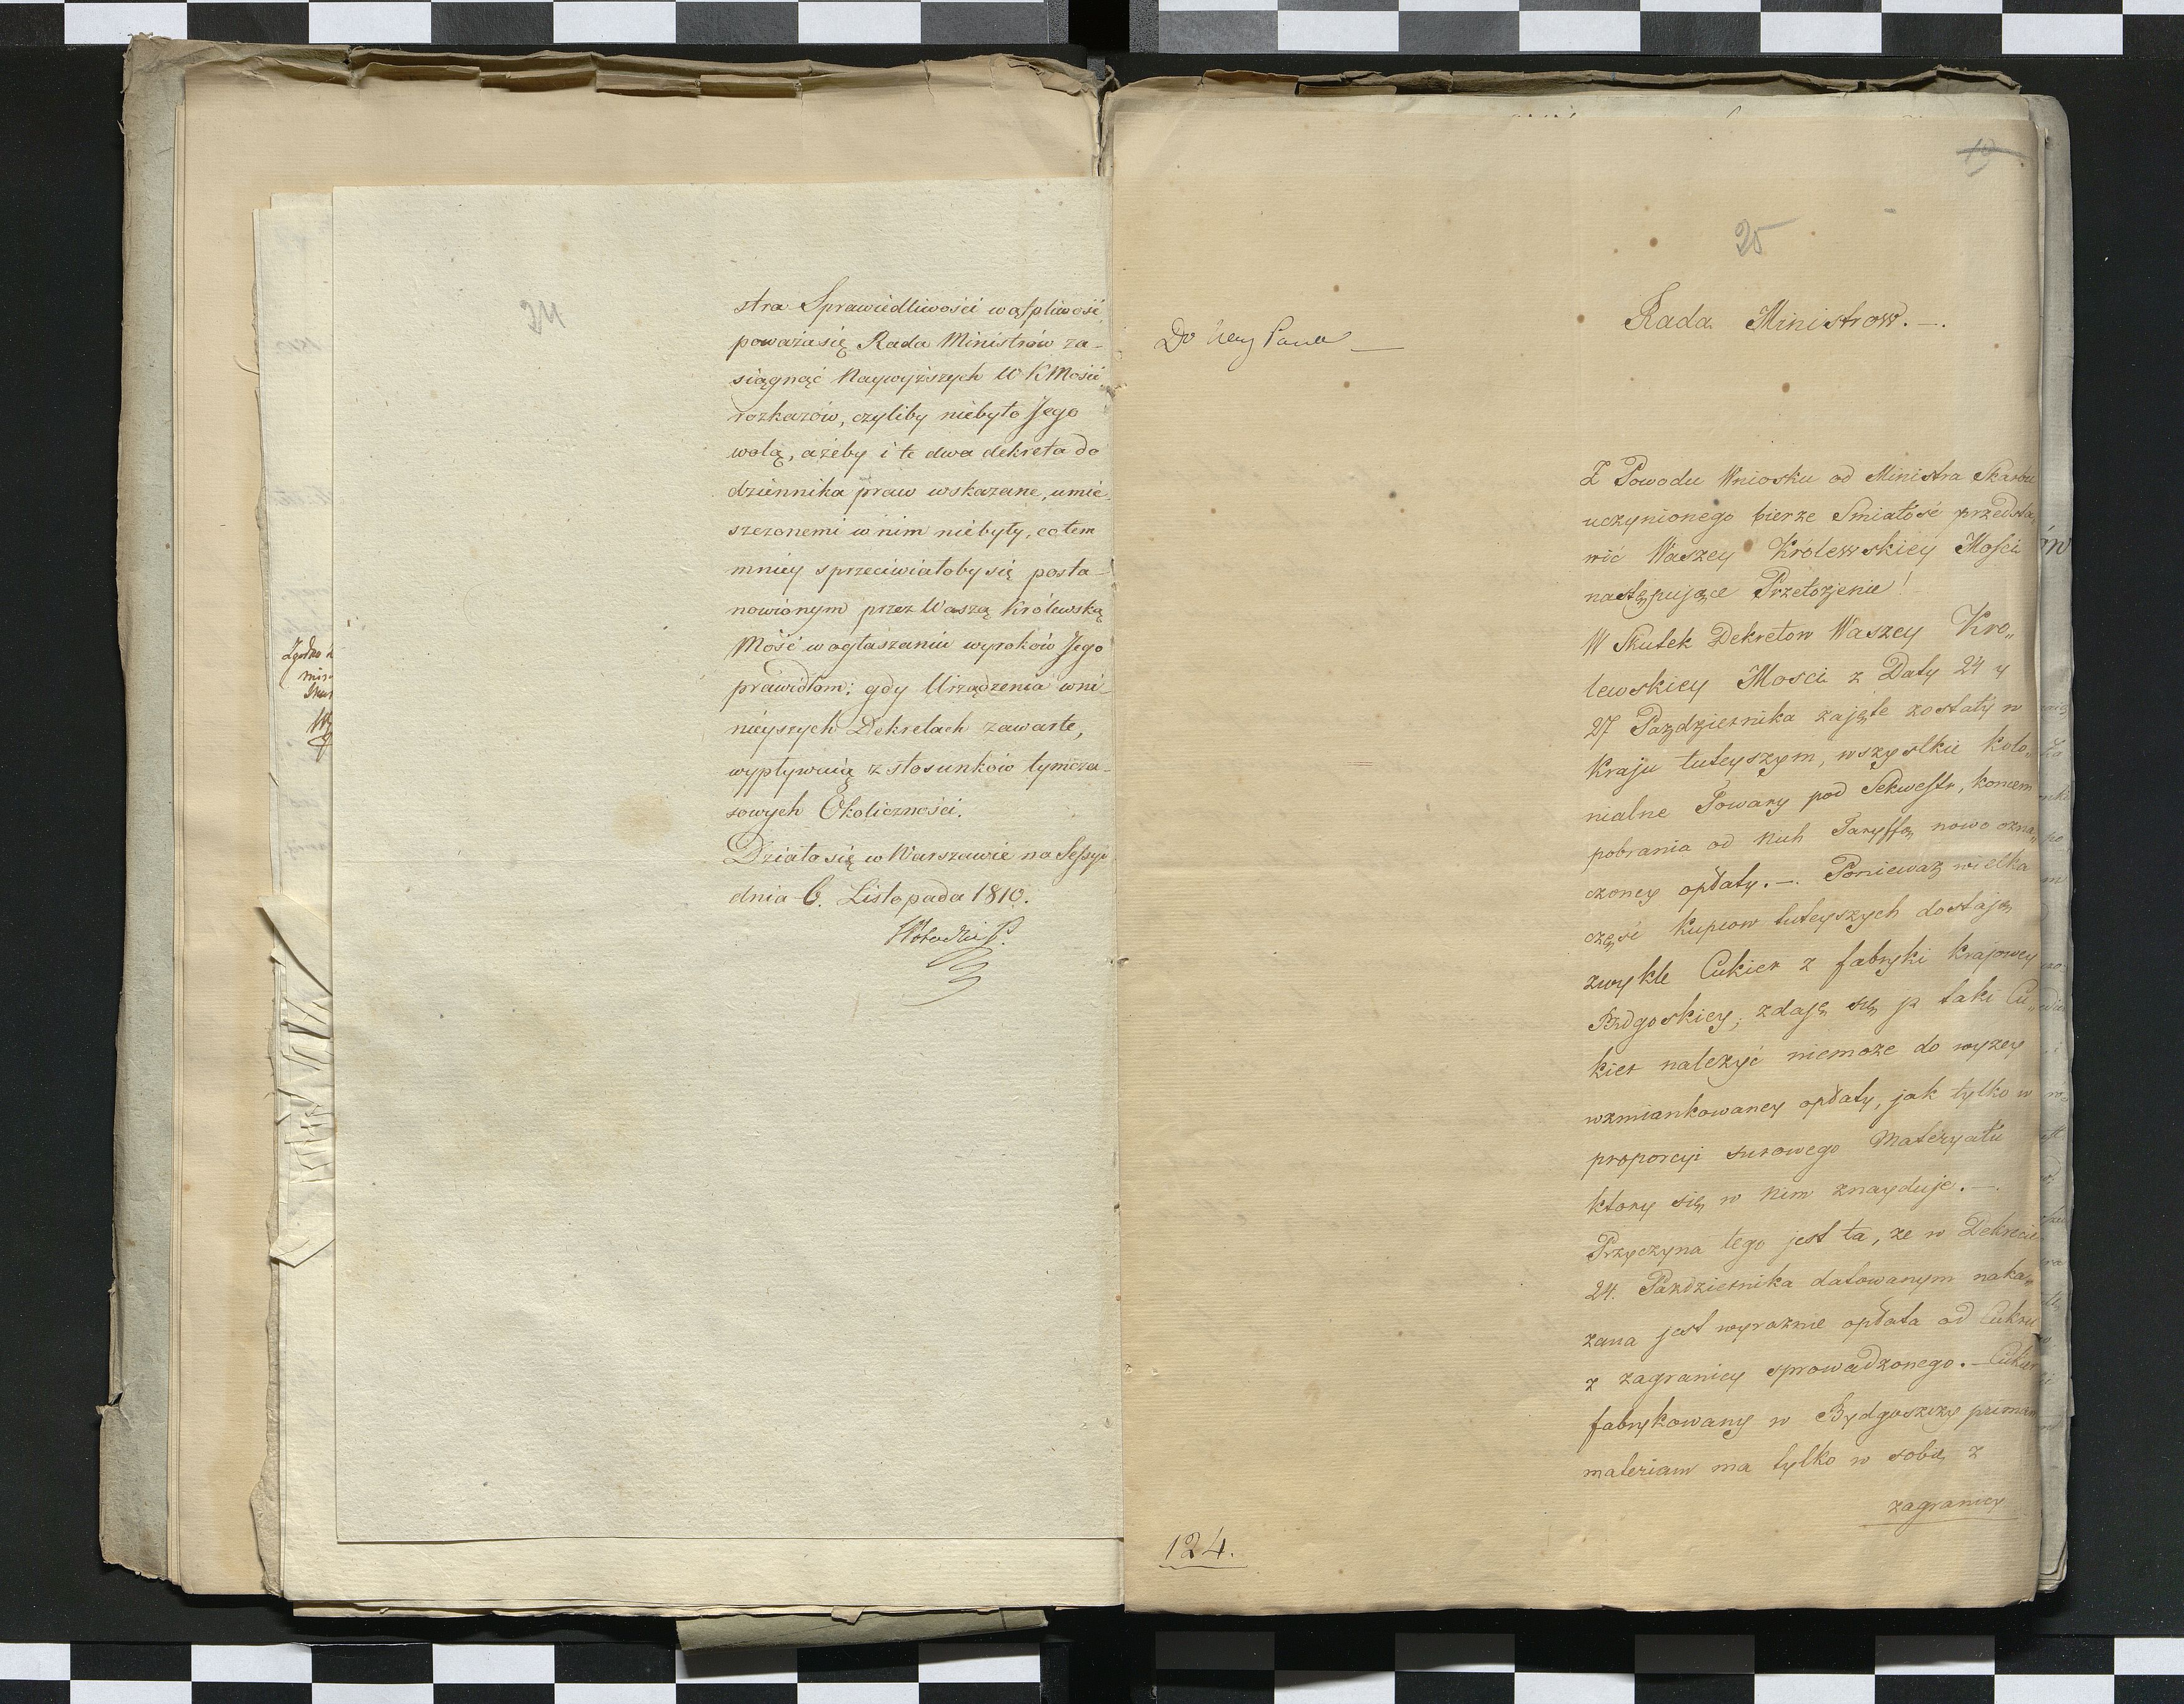 24
stra Sprawiedliwości wątpliwość
poważa się Rada Ministrów za-
siągnąć Naywyższych W K Mości
rozkazów, czyliby niebyło Jego
wolą, ażeby i te dwa dekreta do
dziennika praw wskazane, umie-
szczonemi w nim niebyły, co tem
mniey sprzeciwiałoby się posta-
nowionym przez Waszą Królewską
Mość w ogłaszaniu wyroków Jego
prawidłom: gdy Urządzenia w ni-
nieyszych Dekretach zawarte,
wypływaią z stosunków tymcza-
sowych Okoliczności.
Działo się w Warszawie na Sessyi
dnia 6. Listopada 1810.
19
25
Rada Ministrow. —.
Do
Z Powodu Wniosku od Ministra Skarbu
uczynionego bierze Smiałość przedsta„
wić Waszey Królewskiey Mości
następujące Przełożenie!
W Skutek Dekretow Waszey Kro„
lewskiey Mosci z Daty 24 y
27 Pazdziernika zajęte zostały w
Kraju tuteyszym, wszystkie kolo„
nialne Towary pod Sekwestr, koncem
pobrania od nich Taryffą nowo ozna„
czoney opłaty. —. Ponieważ wielka
częsć kupcow tuteyszych dostają
zwykle Cukier z fabryki krajowey
Bydgoskiey, zdaję się iż taki Cu„
kier należyć niemoże do wyzey
wzmiankowaney opłaty, jak tylko w
proporcyi surowego Materyału
ktory się w nim znayduje. —.
Przyczyna tego jest ta, ze w Dekrecie
24. Pazdziernika datowanym naka„
zana jest wyraznie opłata od Cukru
z zagranicy sprowadzonego. — Cukier
fabrykowany w Bydgoszczy primam
materiam ma tylko w sobie z
zagranicy
124.